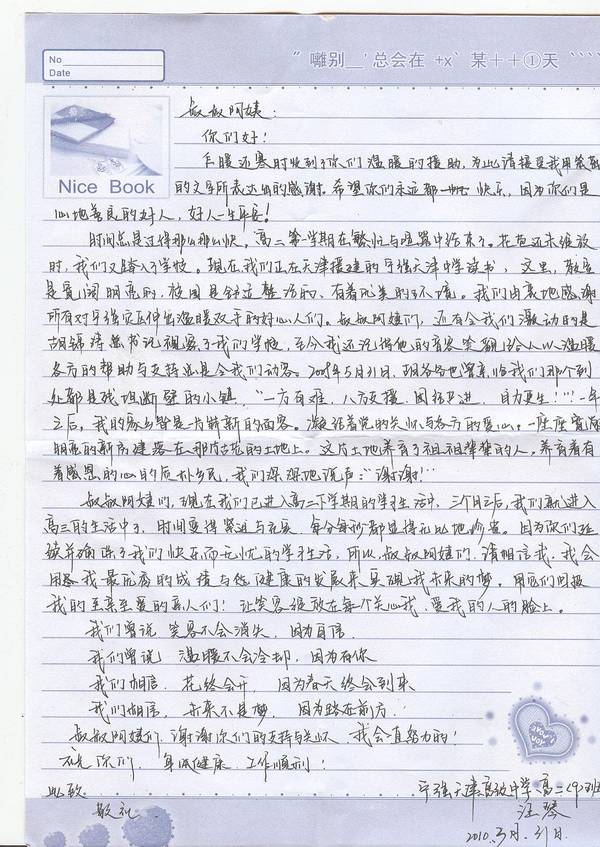 "嘴别__'总会在 +x` 某++①天 ````
No
Date
Nice Book
叔叔阿姨:
你们好!
乍暖还寒时收到了你们温暖的援助,为此请接受我用笨拙
的文字所表达出的感谢。希望你们永远都 快乐,因为你们是
心地善良的好人,好人一生平安!
时间总是过得那么那么快。高二第一学期在繁忙与喧嚣中结束了。花苞还未绽放
时,我们又踏入了学校。现在我们正在天津援建的宁强天津中学读书,这里,教室
是宽阔明亮的,校园是舒适整洁的、有着优美的环境。我们由衷地感谢
所有对宁强灾区伸出温暖双手的好心人们。叔叔阿姨们,还有令我们激动的是
胡锦涛总书记视察了我们学校,至今我还记得他的音容笑貌,给人以温暖
各方的帮助与支持总是令我们动容。2008年5月31日,胡爷爷也曾亲临我们那个到
处都是残垣断壁的小镇,"一方有难,八方支援,团结奋进,自力更生!"一年
之后,我的家乡皆是一片崭新的面容。凝结着党的关怀与各方的爱心。一座座宽敞
明亮的新房建落在那片古老的土地上。这片土地养育了祖祖辈辈的人,养育着有
着感恩的心的质朴乡民,我们深深地说声:"谢谢!"
叔叔阿姨们,现在我们已进入高二下学期的学习生活中,三个月之后,我们就进入
高三的生活中了,时间变得紧迫与充实,每分每秒都显得无比地珍贵。因为你们延
续并确保了我们快乐而无忧的学习生活,所以,叔叔阿姨们,请相信我,我会
用 我最优秀的成绩与 健康的发展来实现我未来的梦,用它们回报
我的至亲至爱的亲人们!让笑容绽放在每个关心我、爱我的人的脸上。
我们曾说 笑容不会消失,因为自信
我们曾说 温暖不会冷却,因为有你
我们相信,花终会开,因为春天终会到来
我们相信,未来不是梦,因为路在前方
叔叔阿姨们,谢谢你们的支持与关怀,我会更努力的!
祝你们,身体健康,工作顺利!
此致
敬礼
宁强天津高级中学,高二(9)班
汪琴
2010.3月.31日